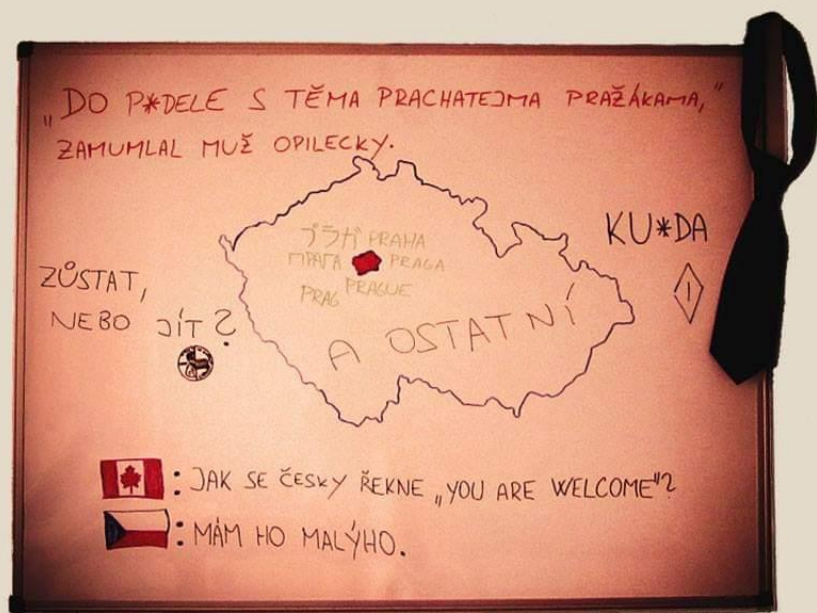 „DO P*DELE S TĚMA PRACHATEJMA PRAŽÁKAMA,“
ZAMUMLAL MUŽ OPILECKY.
プラガ PRAHA
ПРАГА PRAGA
PRAG PRAGUE
A OSTATNÍ
KU*DA
!
ZŮSTAT,
NEBO JÍT?
: JAK SE ČESKY ŘEKNE „YOU ARE WELCOME“?
: MÁM HO MALÝHO.